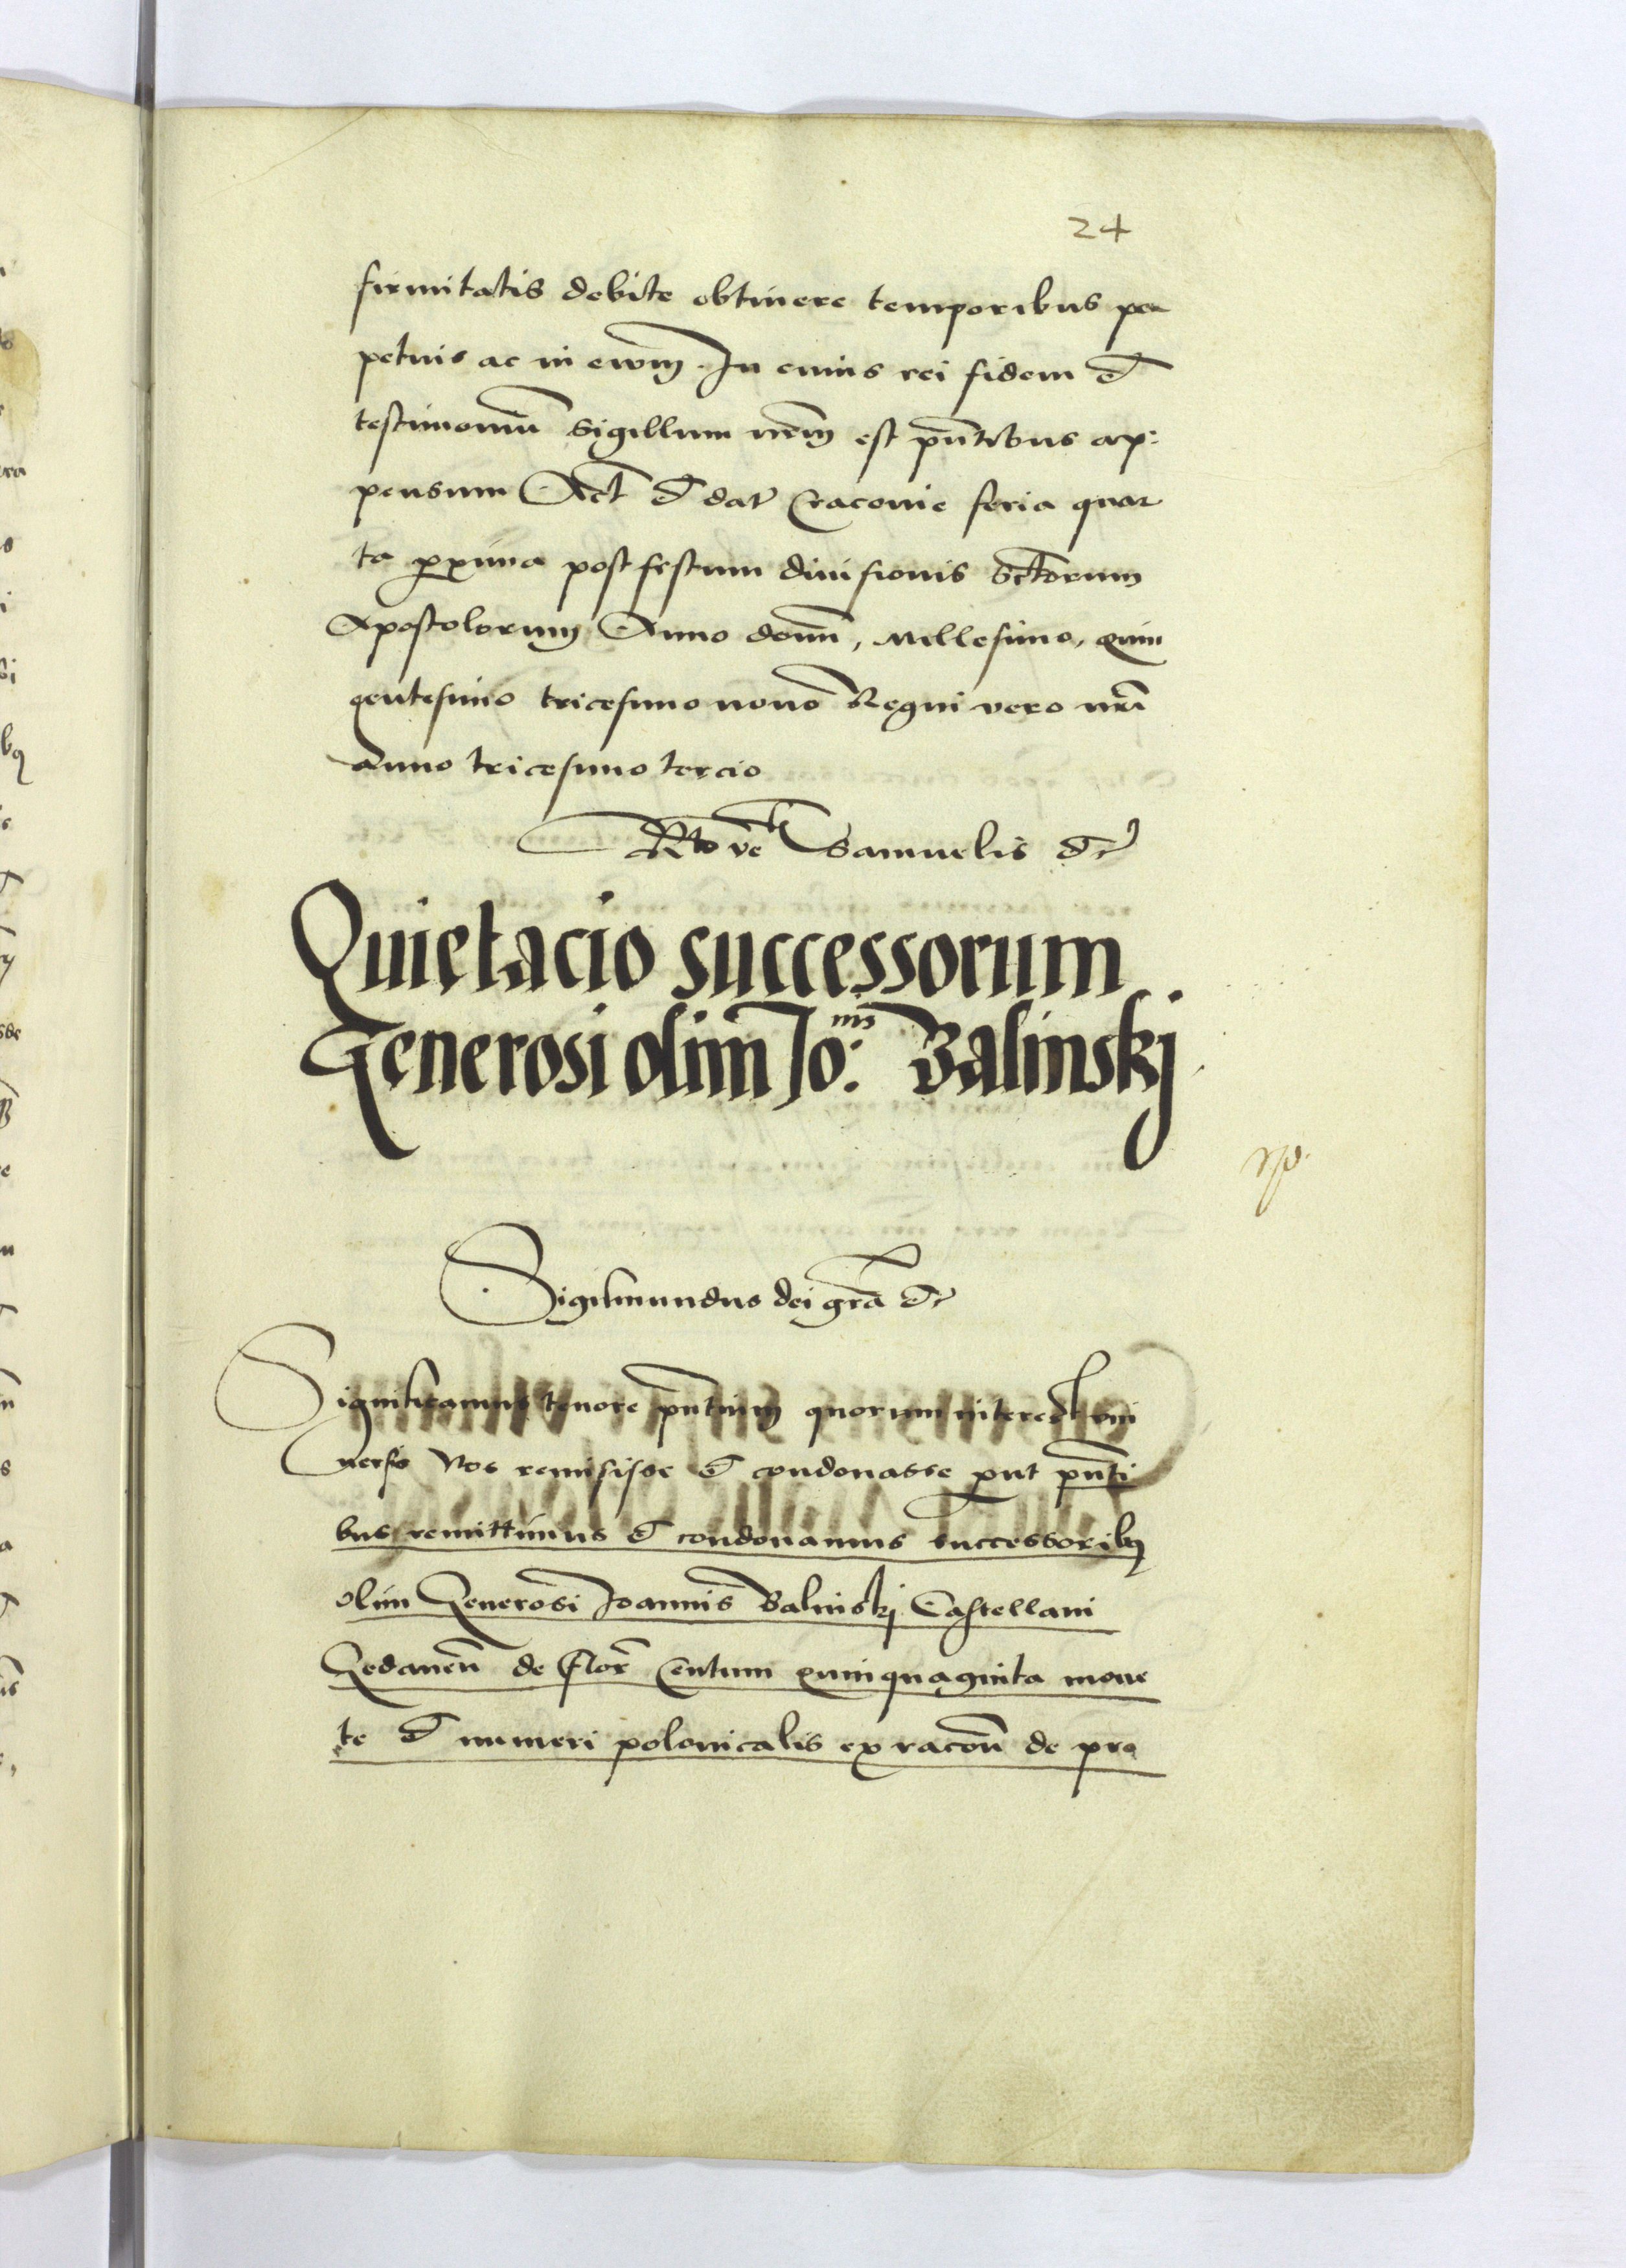 24
firmitatis debite obtinere temporibus per
petuis ac in ewm. In cuius rei fidem et
testimoniu Sigillum nrm est pntibus ap:
pensum Act et dat Cracovie feria quar
ta pxima post festum divisionis Sctorum
Apostolorum Anno domi, Millesimo, quin
gentesimo tricesimo nono Regni vero nri
anno tricesimo tercio
Rto ve Samuelis etc
Quietacio successorum
Generosi olim Jo:nis Balinskj
Sigismundus dei gra etc
Significamus tenore pntium quorum interest vni
versis Nos remisisse et condonasse put pnti
bus remittimus et condonamus successoribq
olim Generosi Joannis Balinskj Castellani
Gedanen de flor Centum quinquaginta mone
te et numeri polonicalis ex racon de pro